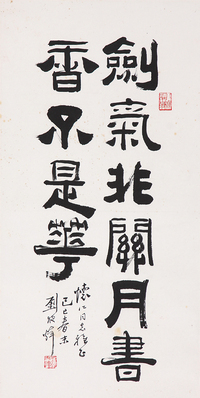 劍氣非關月書
香不是華
懷仁同志雅正
己巳春末
劉炳輝